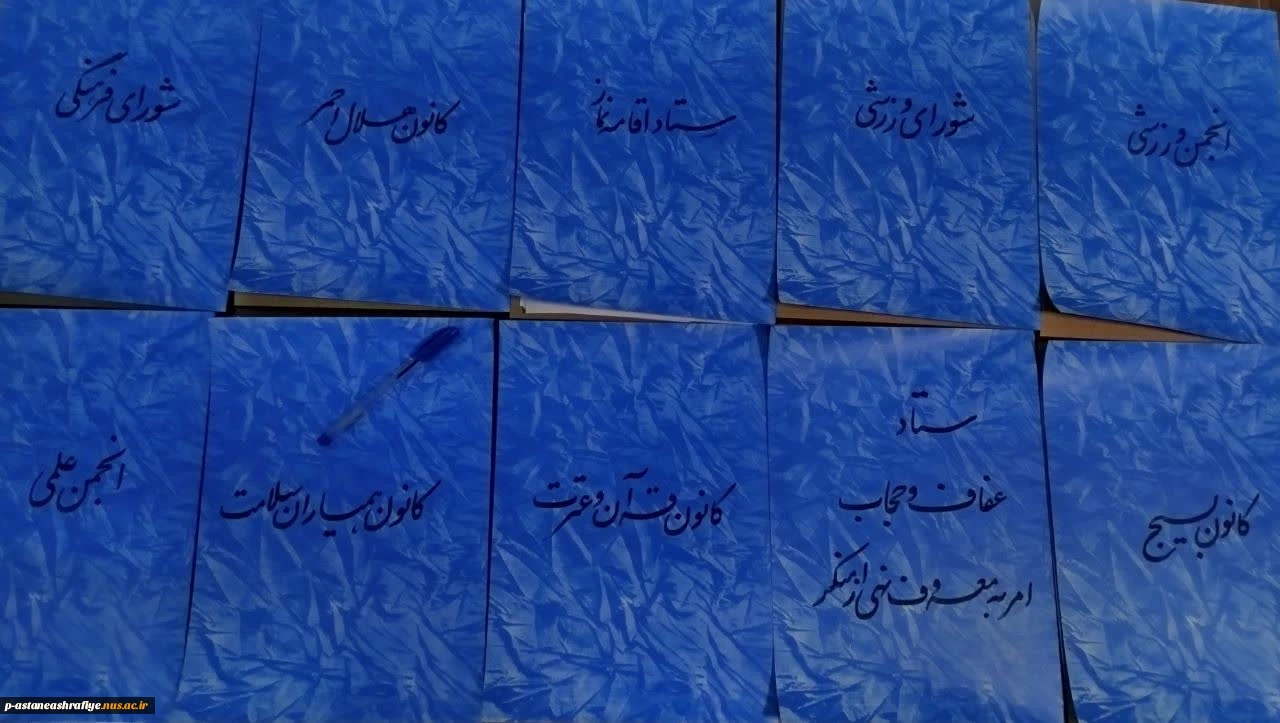 انجمن ورزشی
شورای ورزشی
ستاد اقامه نماز
کانون هلال احمر
شورای فرهنگی
کانون بسیج
ستاد
عفاف و حجاب
امر به معروف نهی از منکر
کانون قرآن و عترت
کانون همیاران سلامت
انجمن علمی
p-astaneashrafiye.nus.ac.ir